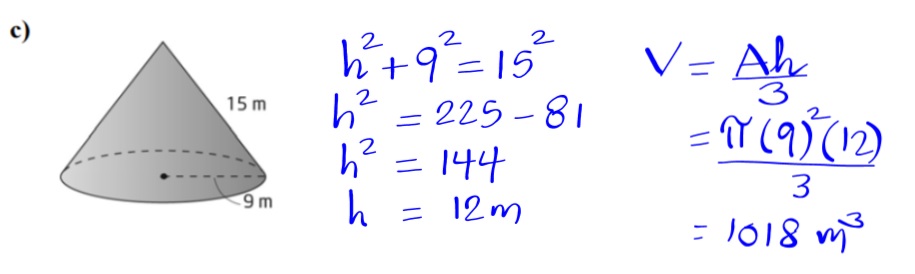 c)
15 m
9 m
h² + 9² = 15²
h² = 225 - 81
h² = 144
h = 12m
V = Ah/3
= π(9)²(12)/3
= 1018 m³